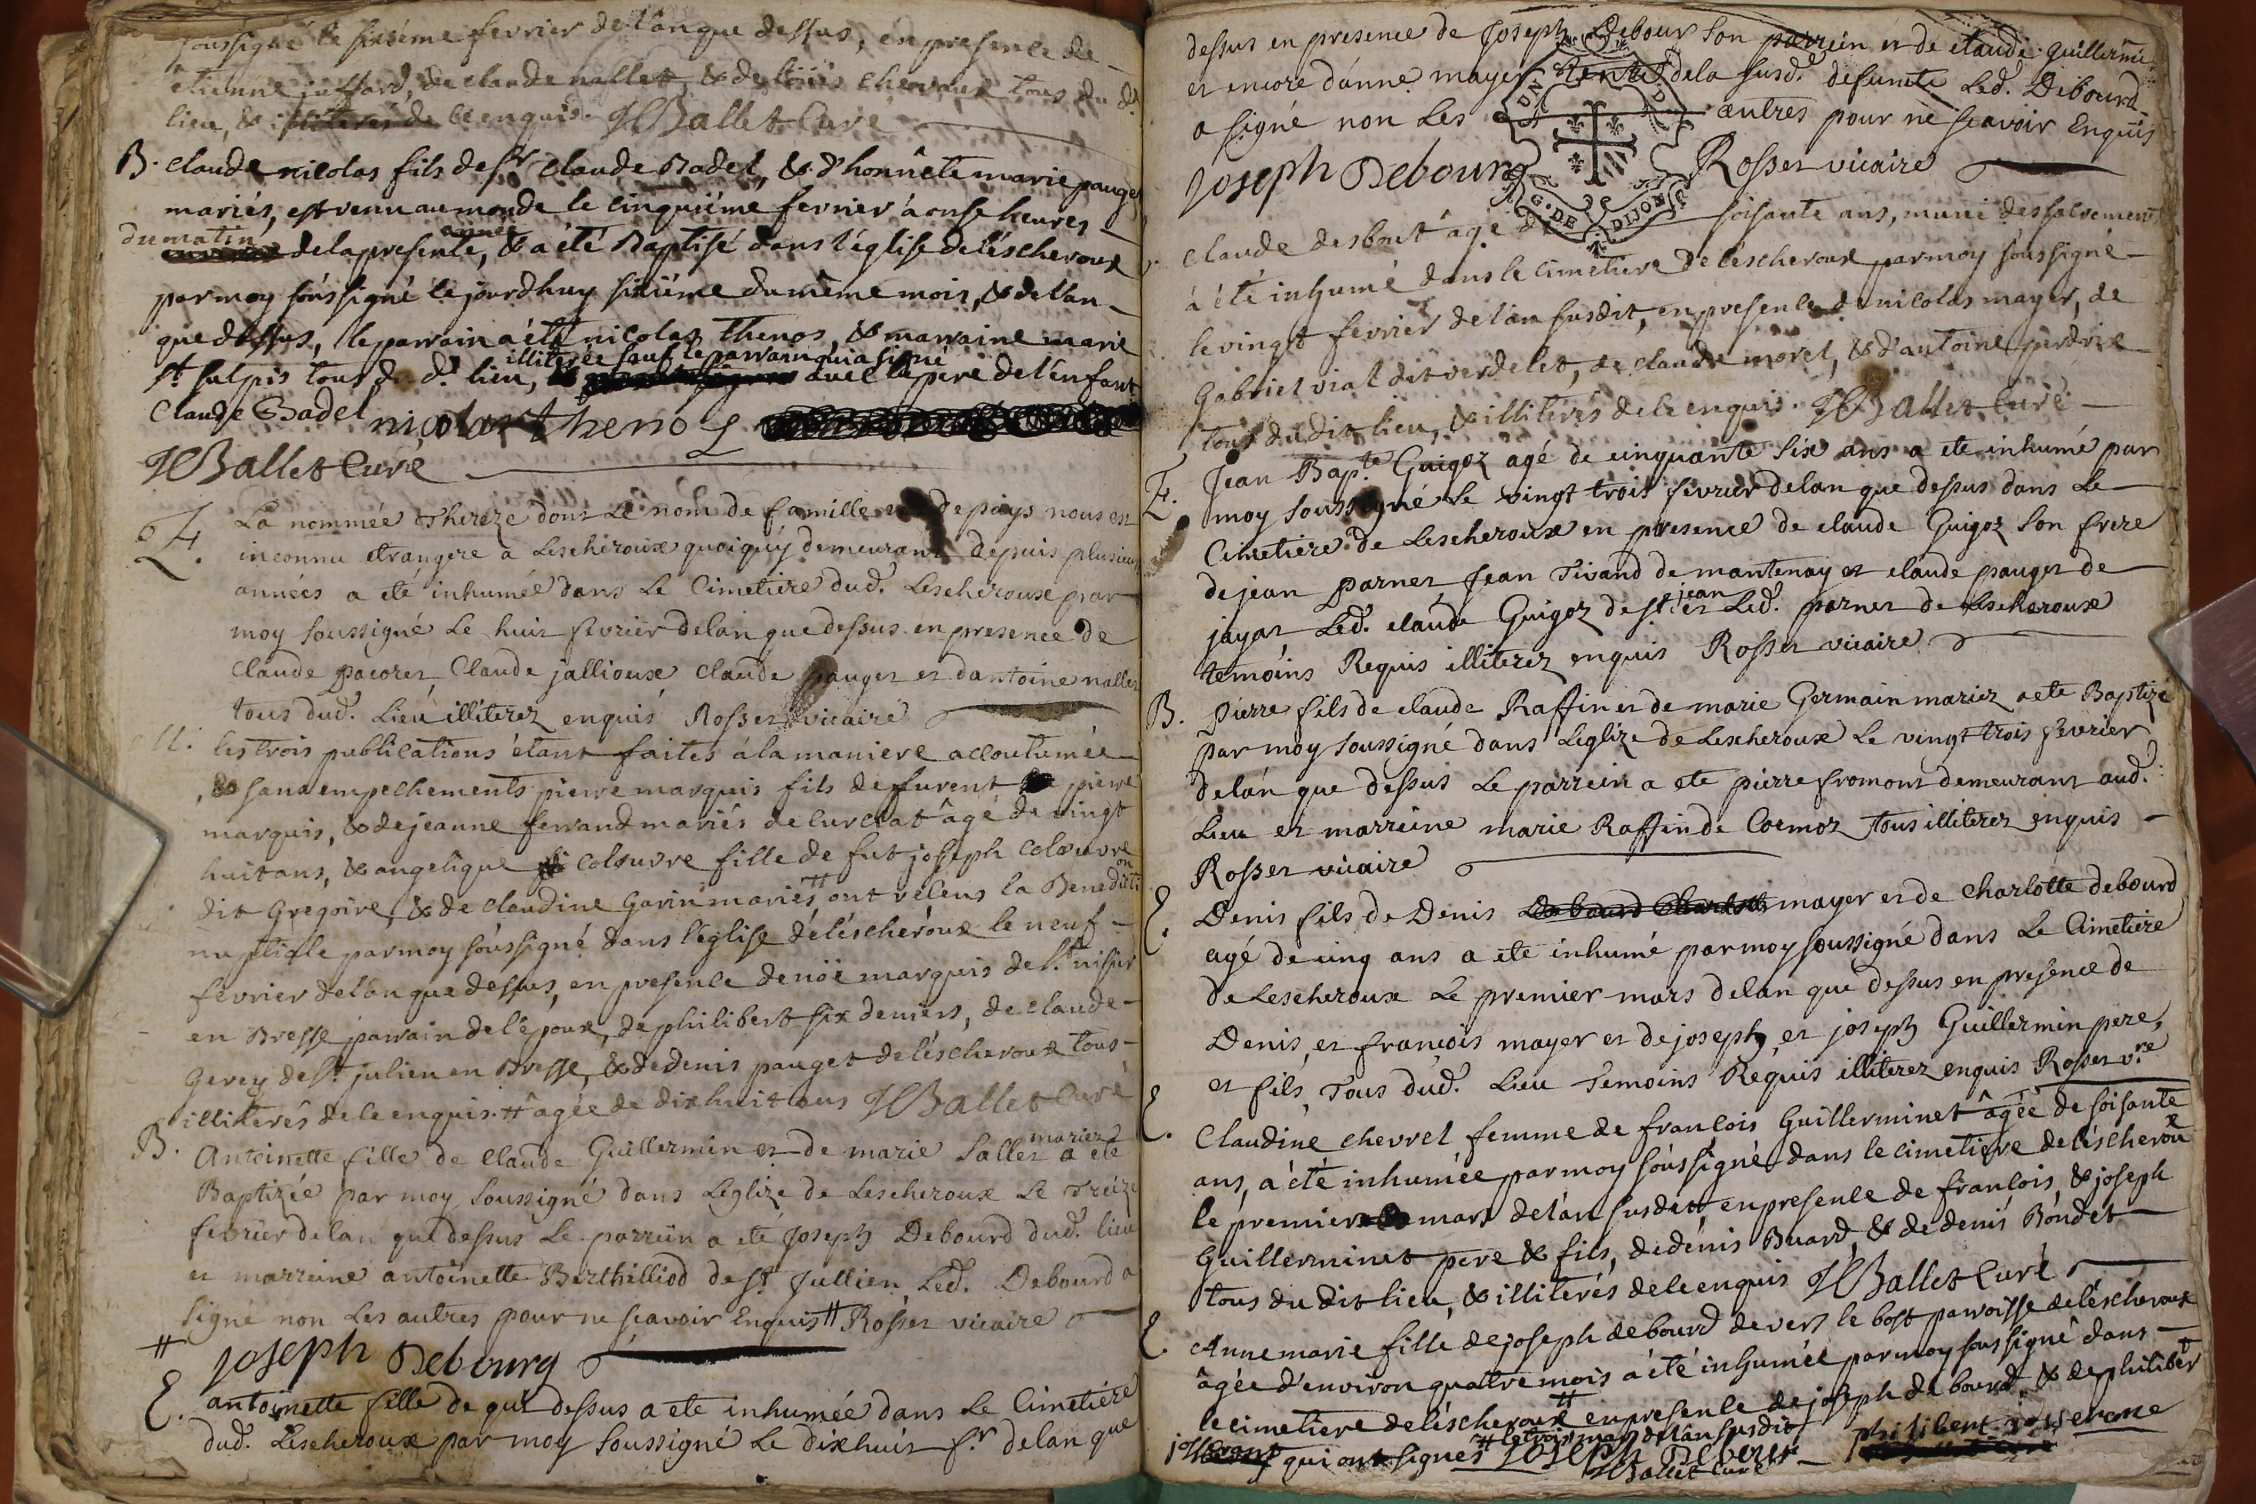 soussigné le sixiéme fevrier de l'an que dessus, en presence de
etienne juffard, de claude nallet, & de loüis chevaux tous du d.
lieu, & illiterés de ce enquis. JCBallet Curé
B. claude nicolas fils de sr claude Badel, & d'honnête marie pauget
mariés, est venu au monde le cinquiéme fevrier à onse heures
du matin de la presente année, & a été Baptisé dans l'église de lescheroux
par moy soussigné le jourdhuy sixiéme du même mois, & de l'an
que dessus, le parrain a été nicolas thenos, & marraine marie
st sulpis tous du d. lieu, illiterée sauf le parrain qui a signé avec le pere de l'enfant
Claude Badel nicolas thenos
JCBallet Curé
E. La nommée Thereze dont Le nom de famille et de pays nous est
inconnu etrangere a Lescheroux quoiqu'y demeurant depuis plusieurs
années a eté inhumée dans Le Cimetiere dud. Lescheroux par
moy soussigné Le huit fevrier delan que dessus en presence de
Claude pacoret Claude jallioux Claude pauget et dantoine nallet
tous dud. Lieu illiterez enquis Rosset vicaire
M. les trois publications étant faites á la maniere accoutumée
& sans empechements pierre marquis fils de furent pierre
marquis, & de jeanne ferrand mariés de curciat âgé de vingt
huit ans, & angelique colouvre fille de fut joseph colouvre
dit Gregoire, & de claudine Garin mariés # ont receus la Benediction
nuptiale par moy soussigné dans l'église de lescheroux le neuf
fevrier de l'an que dessus, en presence de noë marquis de st. nisier
en Bresse parrain de l'époux, de philibert six deniers, de claude
Gerey de st julien en Bresse, & de denis pauget de lescheroux tous
illiterés de ce enquis. # âgée de dix huit ans JCBallet Curé
B. Antoinette fille de claude Guillermin et de marie Sallet mariez a eté
Baptizée par moy soussigné dans Leglize de Lescheroux Le Treize
fevrier delan que dessus Le parrein a eté Joseph Debourd dud. lieu
et marreine antoinette Berthilliod de st. Jullien, Led. Debourd a
signé non Les autres pour ne scavoir Enquis # Rosset vicaire
# joseph Debourg
E. antoinette fille de qui dessus a ete inhumée dans Le Cimetiere
dud. Lescheroux par moy soussigné Le dixhuit f.r delan que
dessus en presence de Joseph Debour son parrein et de claude guillermin
et encore d'anne mayer tente dela susd. defunte Led. Debourd
a signé non Les autres pour ne scavoir Enquis
joseph Debourg Rosset vicaire
DIJON
claude desbout âgé de soisante ans, muni des sacrements
à été inhumé dans le cimetiere de lescheroux par moy soussigné
le vingt fevrier de l'an susdit, en presence de nicolas mayer, de
Gabriel vial dit verdelet, de claude morel, & d'antoine perdrix
tous du dit lieu, & illiterés de ce enquis. JCBallet Curé
E. Jean Bapte. Guigoz agé de cinquante six ans a ete inhumé par
moy soussigné Le vingt trois fevrier delan que dessus dans Le
Cimetiere de Lescheroux en presence de claude Guigoz son frere
de jean parnet jean Tivand de mantenay et claude pauget de
jayat Led. claude Guigoz de st. jean et Led. parnet de Lescheroux
temoins Requis illiterez enquis Rosset vicaire
B. pierre fils de claude Raffin et de marie Germain mariez a ete Baptizé
par moy soussigné dans Leglize de Lescheroux Le vingt trois fevrier
delan que dessus Le parrein a ete pierre fromont demeurant aud.
Lieu et marreine marie Raffin de Cormoz tous illiterez enquis
Rosset vicaire
E. Denis fils de Denis mayer et de Charlotte debourd
agé de cinq ans a ete inhumé par moy soussigné dans Le Cimetiere
de Lescheroux Le premier mars delan que dessus en presence de
Denis, et francois mayer et de joseph, et joseph Guillermin pere,
et fils, Tous dud. Lieu Temoins Requis illiterez enquis Rosset v.re
E. Claudine chevrel femme de francois Guillerminet âgée de soisante
ans, a été inhumée par moy soussigné dans le cimetiere de lescheroux
le premier mars de l'an susdit en presence de francois, & joseph
Guillerminet pere & fils, de denis Buard, & de denis Bondet
tous du dit lieu, & illiterés de ce enquis JCBallet Curé
E. Anne marie fille de joseph debourd de vers le bost parroisse de lescheroux
âgée d'environ quatre mois a été inhumée par moy soussigné dans
le cimetiere de lescheroux # en presence de joseph debourd, & de philibert
josserand qui ont signés # le trois mars de l'an susdit joseph Debourg philibert josserane
JCBallet Curé